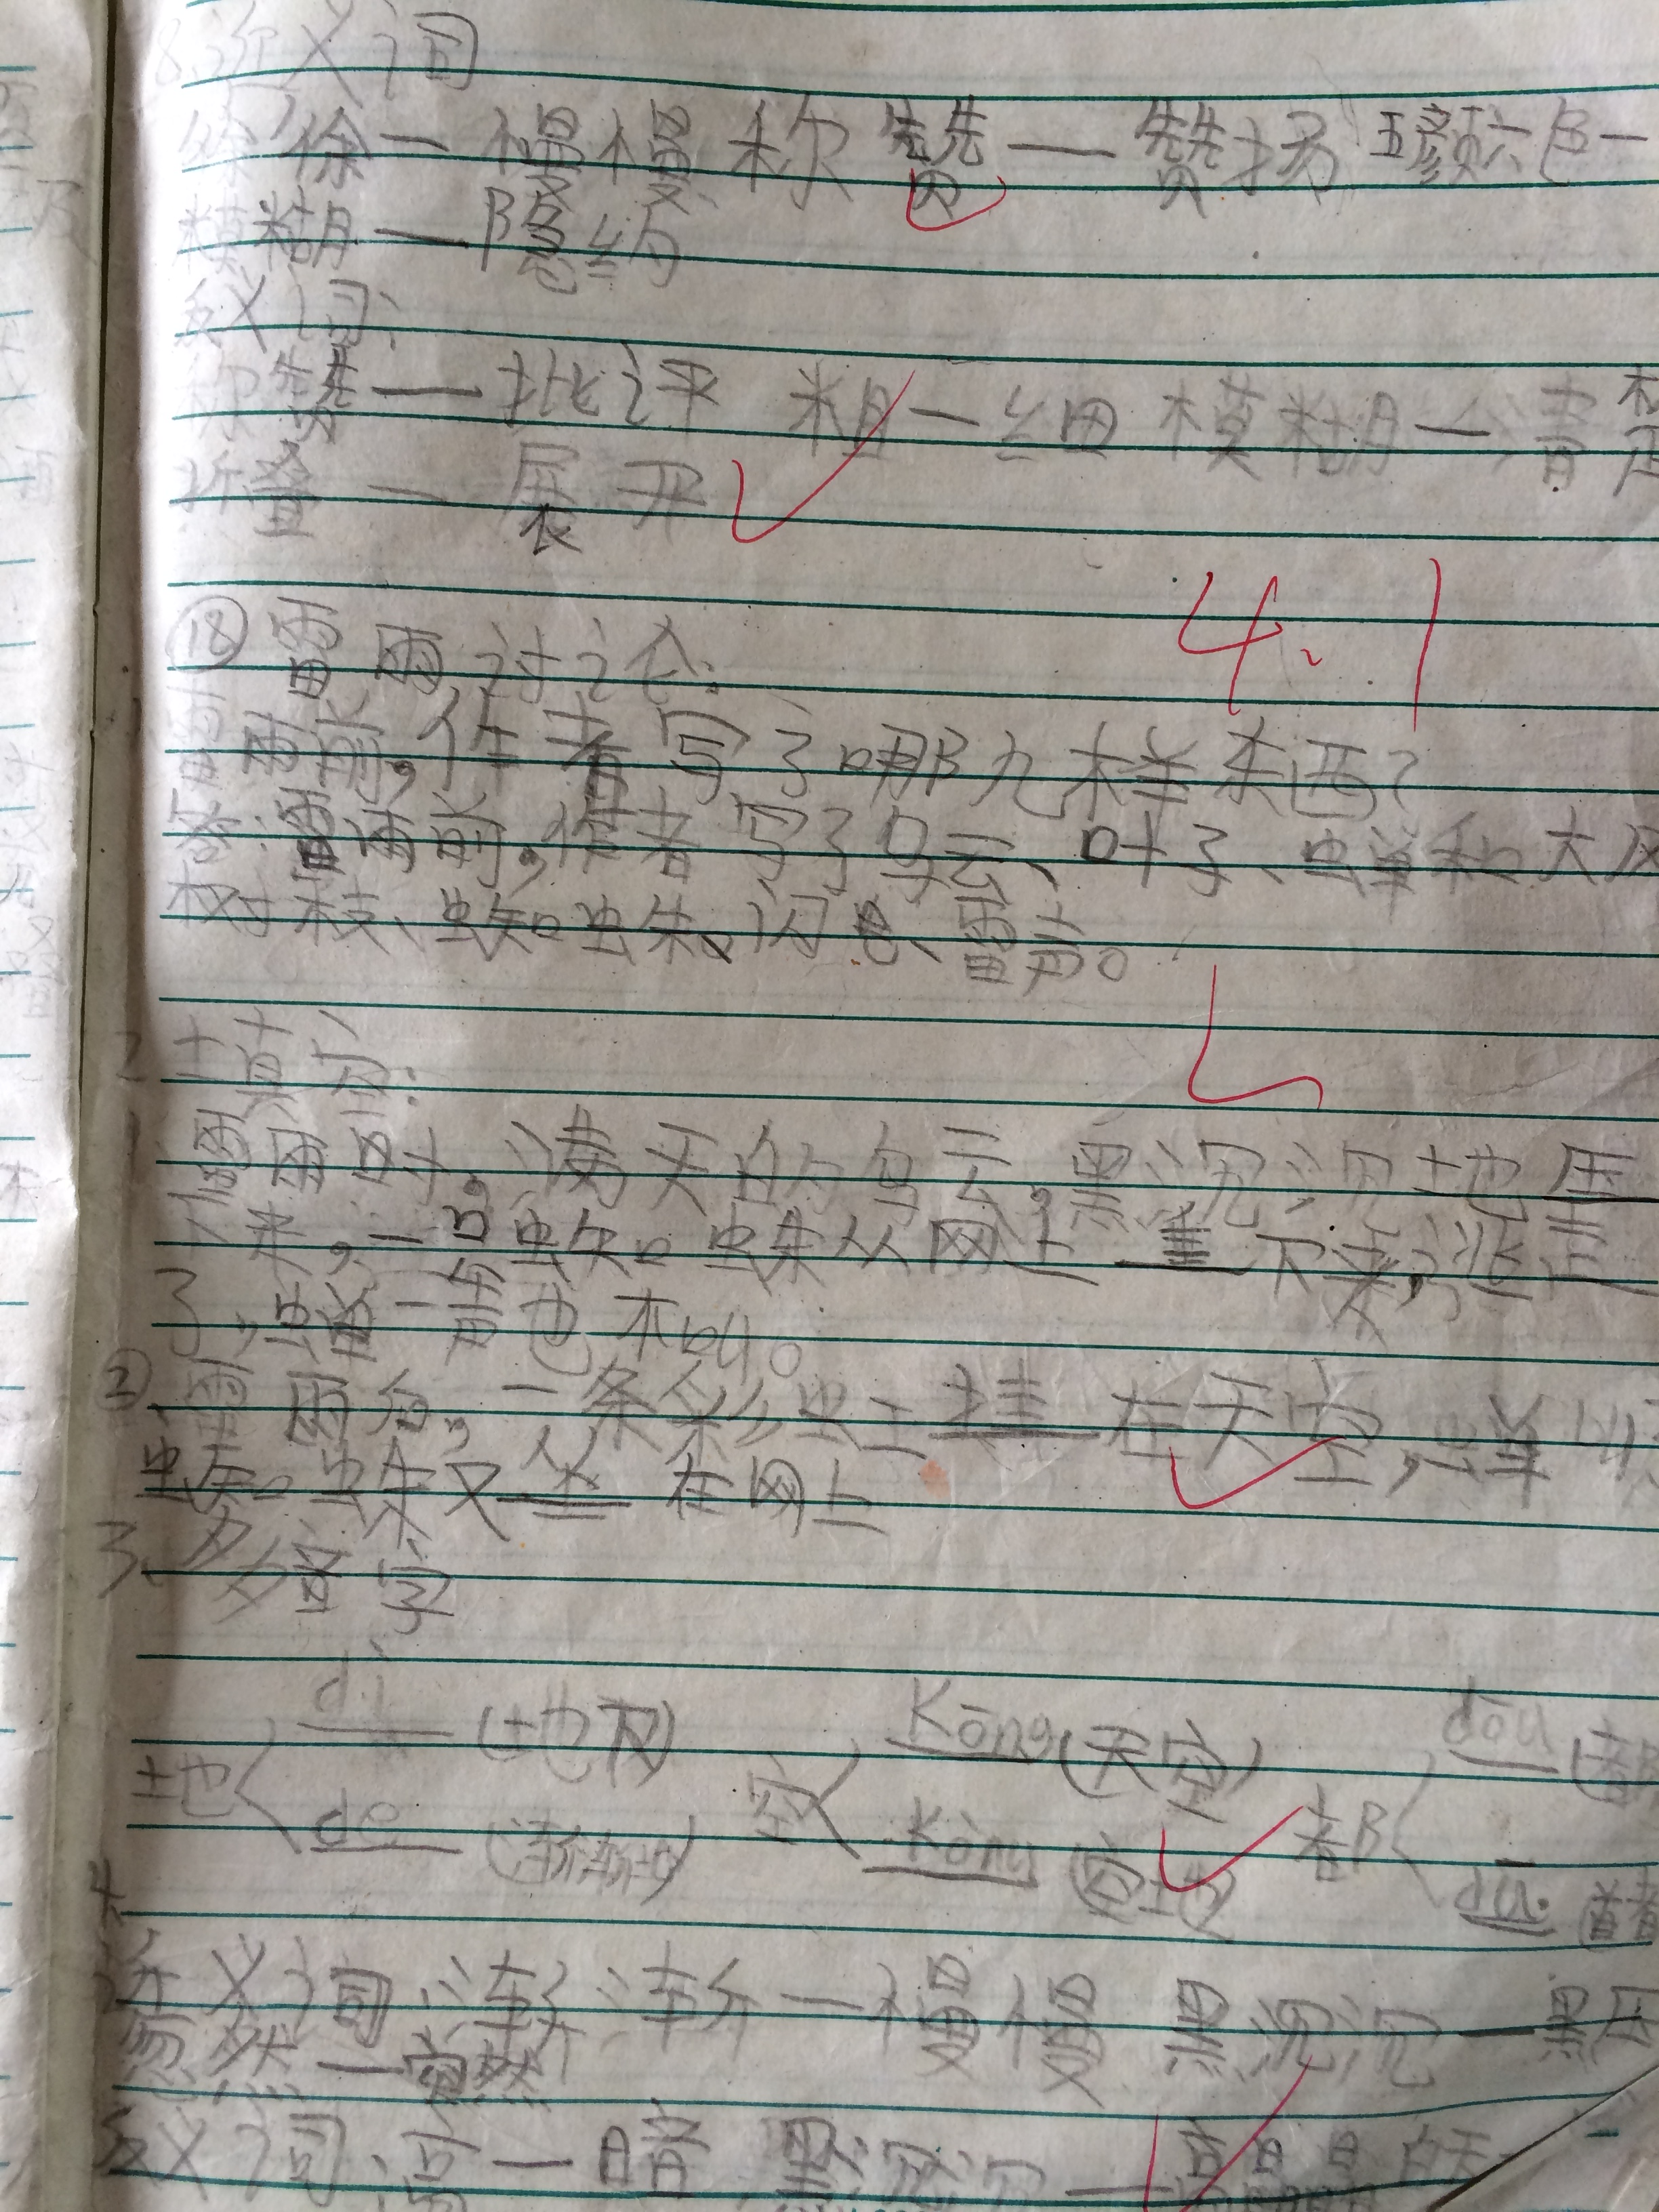 8.近义词
徐徐—慢慢 称赞—赞扬 颜色—
模糊—隐约
反义词:
称赞—批评 粗—细 模糊—清
折叠—展开
4.1
⑱雷雨讨论:
1雷雨前,作者写了哪九样东西?
答:雷雨前,作者写了乌云、叶子、蝉和大风
树枝、蜘蛛、闪电、雷声。
2填空:
1雷雨时,满天的乌云,黑沉沉地压
下来,一只蜘蛛从网上垂下来,逃走
了,蝉一声也不叫。
②雷雨后,一条彩虹挂在天空,蝉叫
蜘蛛又坐在网上
3、多音字
地 dì (地下) 空 Kōng (天空) 都 dōu (都
de (渐渐地) Kòng (空地) dū (首都
4
近义词:渐渐—慢慢 黑沉沉—黑压
忽然—突然
反义词:亮—暗 黑沉沉—